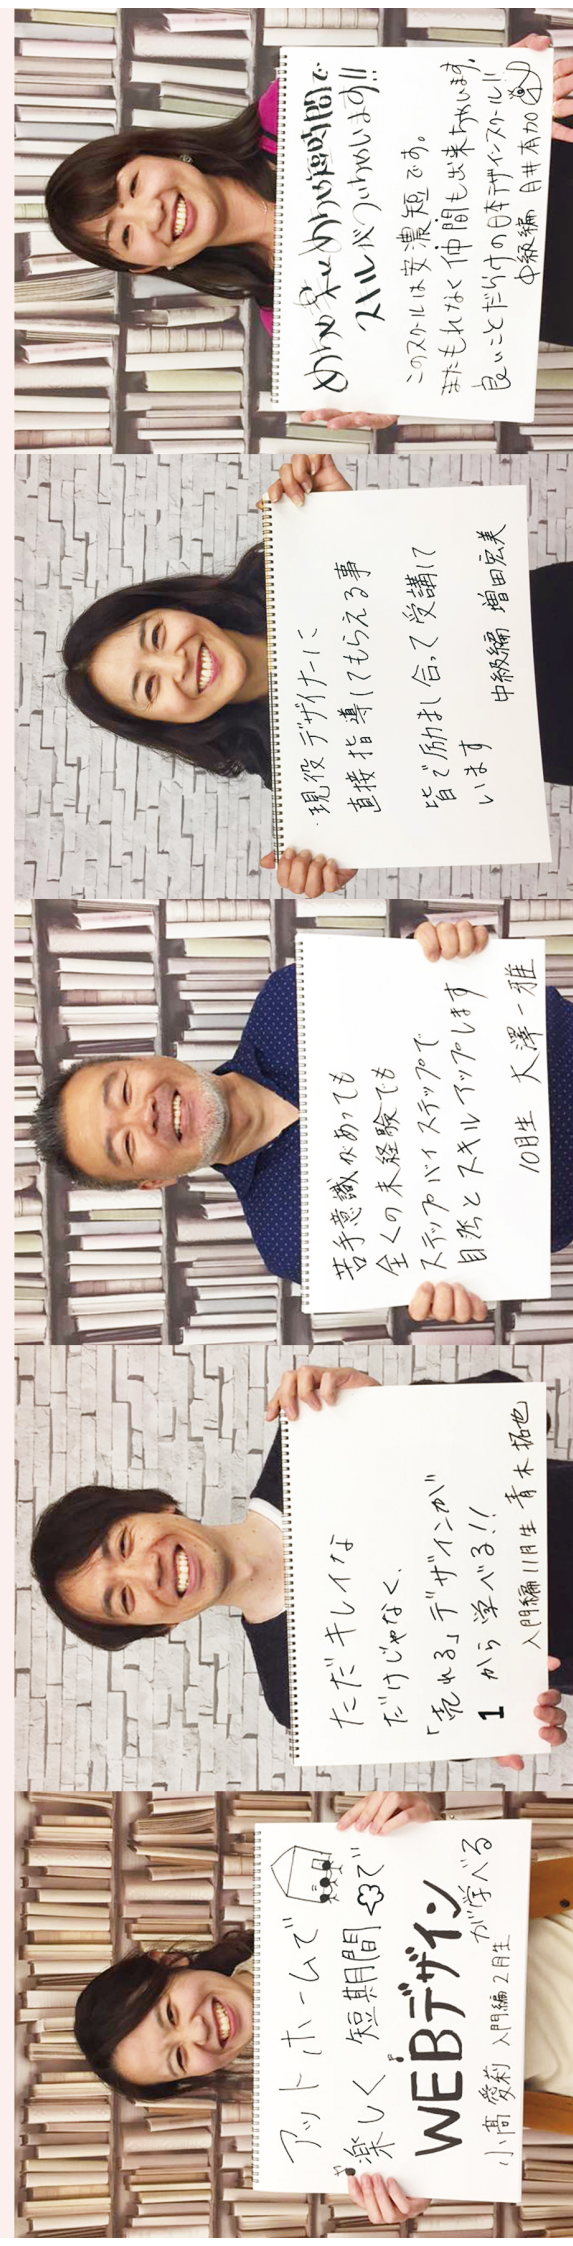 アットホームで
楽しく 短期間で
WEBデザイン
が学べる
小髙 愛莉 入門編2月生
ただキレイな
だけじゃなく、
「売れる」デザインが
1から学べる!!
入門編11月生 青木拓也
苦手意識があっても
全くの未経験でも
ステップバイステップで
自然とスキルアップします
10月生 大澤一雅
・現役デザイナーに
直接指導してもらえる事
皆で励まし合って受講して
います
中級編 増田宏美
めちゃ 短時間で
スキルがついちゃいます!!
このスクールは安濃短です。
またもれなく仲間も出来ちゃいます。
良いことだらけの日本デザインスクール!!
中級編